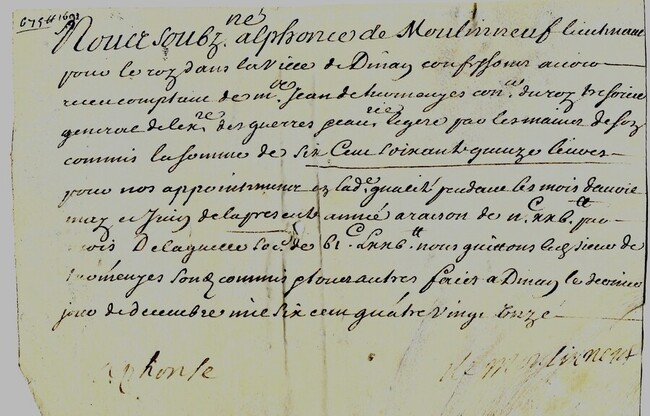 675# 1691
Nous soubz.né alphonce de Moulinneuf lieutenant
pour le roy dans la ville de Dinan confessons avoir
receu comptant de mre. Jean de tromenyes conr. du roy tresorier
general de lexre. des guerres caval.rie legere par les mains de son
commis la somme de six Cens soixante quinze livres
pour nos appointemens en lade. qualité pendant les mois d'avril
may et Juin de la presente année a raison de IIC. XXV tt par
mois De laquelle soe. de 6C. LXXV tt nous quittons led. sieur de
tromenyes sond. commis et tous autres faict a Dinan le dernier
jour de decembre mil six cens quatre vingt Onze
alphonse de moulinneuf